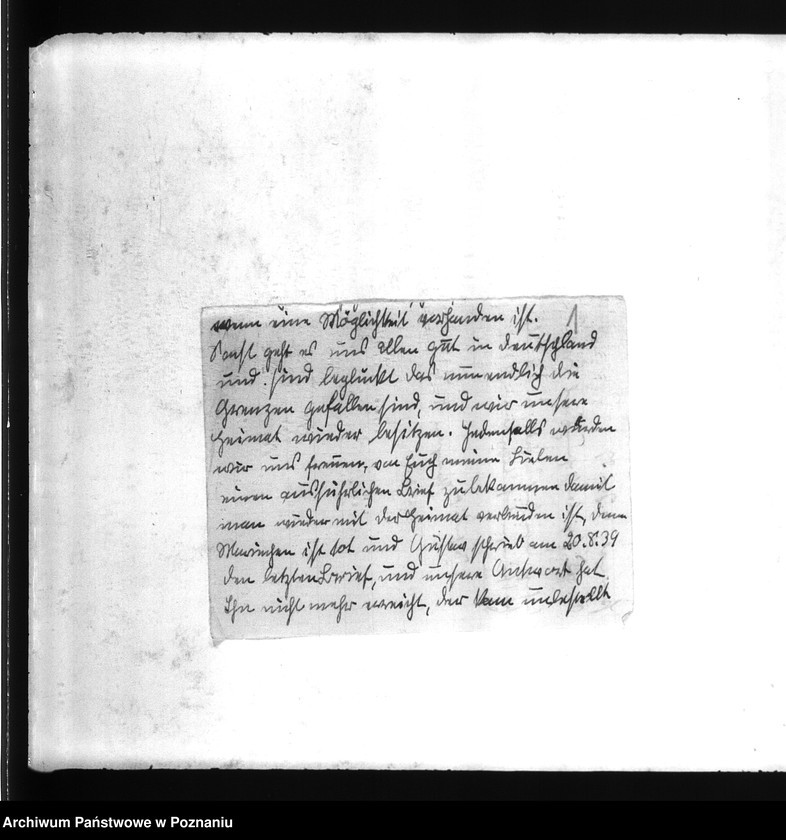 wenn eine Möglichkeit vorhanden ist. 1
Sonst geht es uns allen gut in Deutschland
und sind beglückt das nun endlich die
Grenzen gefallen sind, und wir unsere
Heimat wieder besitzen. Jedenfalls würden
wir uns freuen, von Euch meine Lieben
einen ausführlichen Brief zu bekommen damit
man wieder mit der Heimat verbunden ist, denn
Mariechen ist tot und Gustav schrieb am 20.8.39
den letzten Brief, und unsere Antwort hat
Ihn nicht mehr erreicht, der kam unbestellt
Archiwum Państwowe w Poznaniu